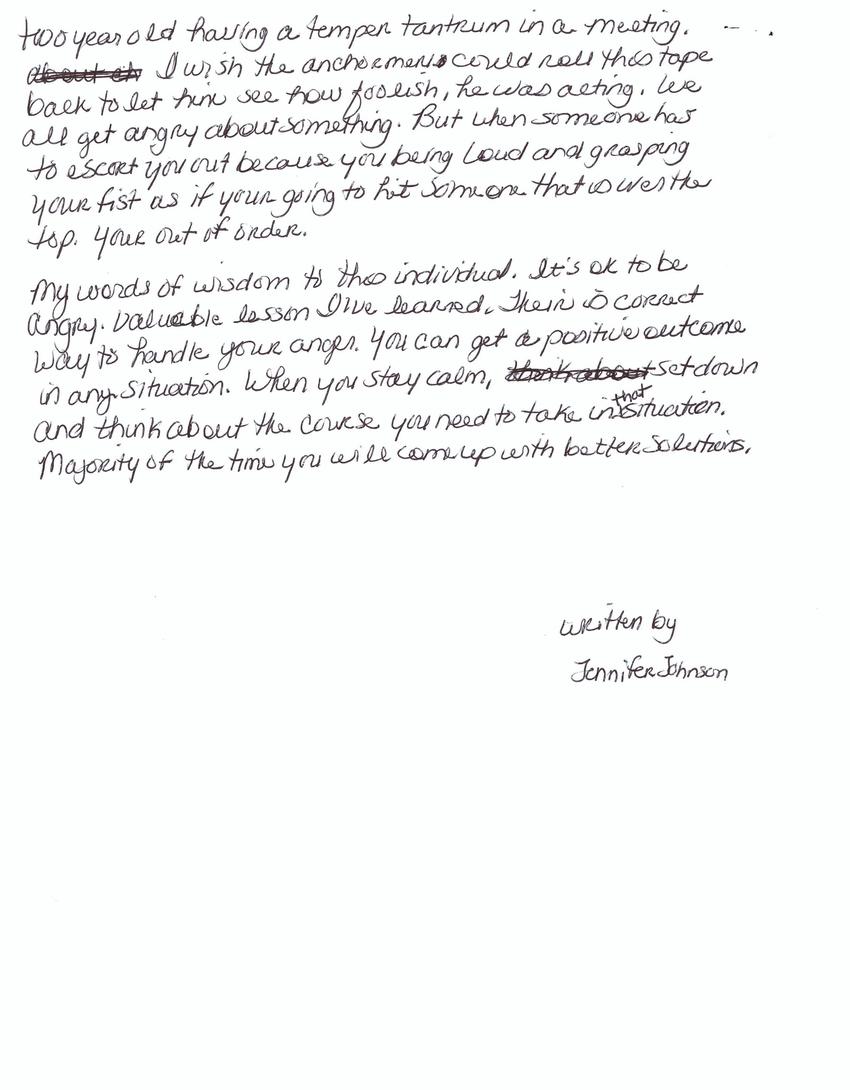 two year old having a temper tantrum in a meeting.
about ch I wish the anchormens could roll this tape
back to let him see how foolish, he was acting. We
all get angry about something. But when someone has
to escort you out because you being loud and grasping
your fist as if your going to hit someone that is over the
top. Your out of order.
My words of wisdom to this individual. It's ok to be
angry. Valuable lesson I've learned. Their is correct
way to handle your anger. You can get a positive outcome
in any situation. When you stay calm, think about set down
and think about the course you need to take in that situation.
Majority of the time you will come up with better solutions.
written by
Jennifer Johnson